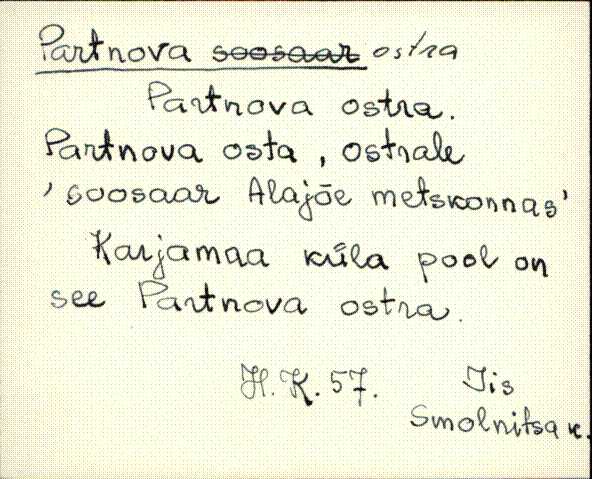 Partnova soosaar ostra
Partnova ostra.
Partnova osta, ostrale
'soosaar Alajõe metskonnas'
Karjamaa küla pool on
see Partnova ostra.
H.K. 57. Iis
Smolnitsa k.